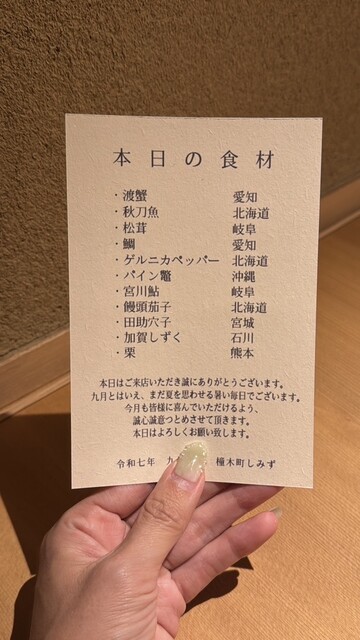 本日の食材
・渡蟹 愛知
・秋刀魚 北海道
・松茸 岐阜
・鯛 愛知
・ゲルニカペッパー 北海道
・パイン鼈 沖縄
・宮川鮎 岐阜
・饅頭茄子 北海道
・田助穴子 宮城
・加賀しずく 石川
・栗 熊本
本日はご来店いただき誠にありがとうございます。
九月とはいえ、まだ夏を思わせる暑い毎日でございます。
今月も皆様に喜んでいただけるよう、
誠心誠意つとめさせて頂きます。
本日はよろしくお願い致します。
令和七年 九 橦木町しみず